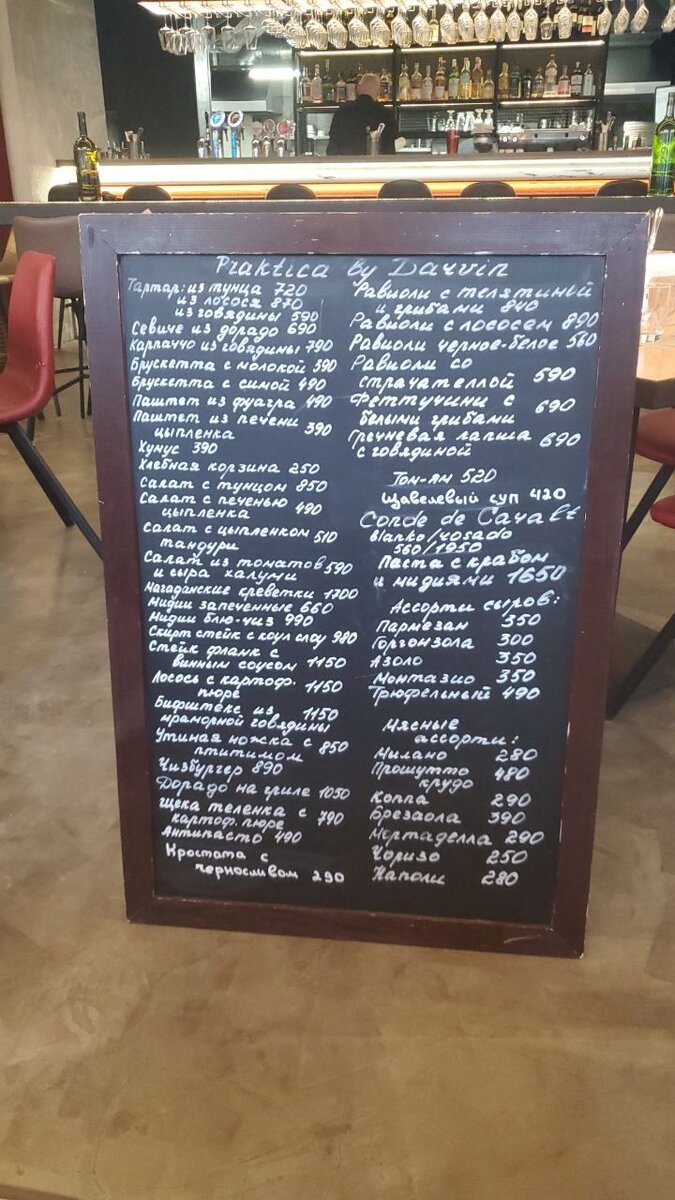 Praktica by Darvin
Тартар: из тунца 720
из лосося 870
из говядины 590
Севиче из дорадо 690
Карпаччо из говядины 790
Брускетта с молокой 390
Брускетта с симой 490
Паштет из фуагра 490
Паштет из печени
цыпленка 390
Хумус 390
Хлебная корзина 250
Салат с тунцом 850
Салат с печенью
цыпленка 490
Салат с цыпленком 510
тандури
Салат из томатов 590
и сыра халуми
Магаданские креветки 1700
Мидии запеченные 660
Мидии блю-чиз 990
Скирт стейк с коул слоу 980
Стейк фланк с
винным соусом 1150
Лосось с картоф. 1150
пюре
Бифштекс из 1150
мраморной говядины
Утиная ножка с 850
птитимом
Чизбургер 890
Дорадо на гриле 1050
Щека теленка с 790
картоф. пюре
Антипасто 490
Кростата с
черносливом 290
Равиоли с телятиной
и грибами 840
Равиоли с лососем 890
Равиоли черное-белое 560
Равиоли со
страчателлой 590
Феттучини с
белыми грибами 690
Гречневая лапша 690
с говядиной
Том-ям 520
Щавелевый суп 420
Conde de Caralt
blanko/rosado
560/1950
Паста с крабом
и мидиями 1650
Ассорти сыров:
Пармезан 350
Горгонзола 300
Азоло 350
Монтазио 350
Трюфельный 490
Мясные
ассорти:
Милано 280
Прошутто 480
крудо
Коппа 290
Брезаола 390
Мортаделла 290
Чоризо 250
Наполи 280